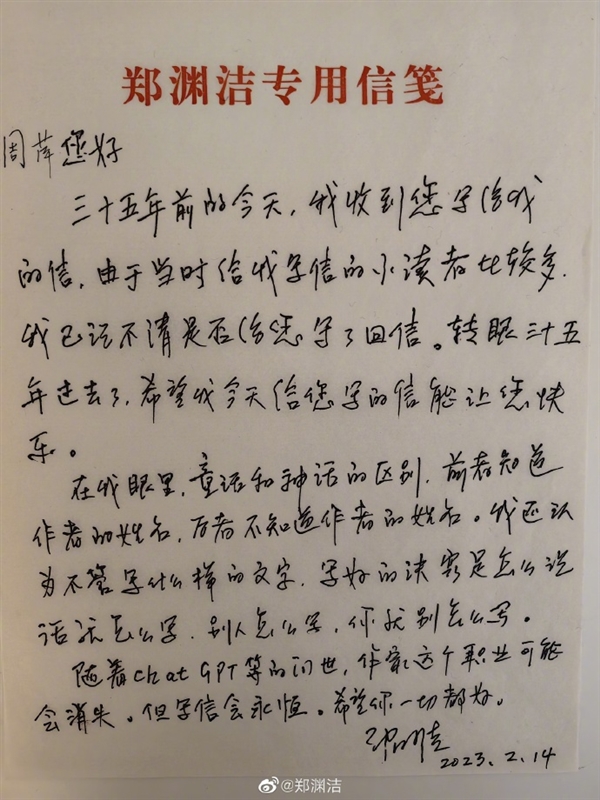 郑渊洁专用信笺
周萍您好
三十五年前的今天，我收到您写给我
的信，由于当时给我写信的小读者比较多，
我已记不清是否给您写了回信。转眼三十五
年过去了，希望我今天给您写的信能让您快
乐。
在我眼里，童话和神话的区别，前者知道
作者的姓名，后者不知道作者的姓名。我还认
为不管写什么样的文字，写好的诀窍是怎么说
话就怎么写，别人怎么写，你就别怎么写。
随着chatGPT等的问世，作家这个职业可能
会消失。但写信会永恒。希望你一切都好。
郑渊洁
2023.2.14
@郑渊洁